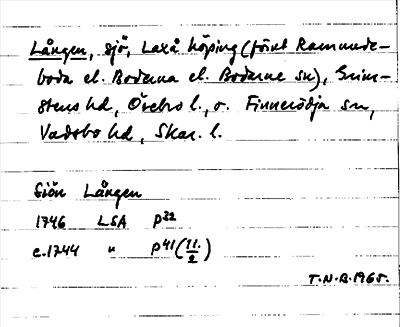 Lången, sjö, Laxå köping (förut Ramunde-
boda el. Boderna el. Boderne sn), Grim-
stens hd, Örebro l., o. Finnerödja sn,
Vadsbo hd, Skar. l.
Sjön Lången
1746 LSA p22
c.1744 " p41 (11./2)
T.N.B. 1965.